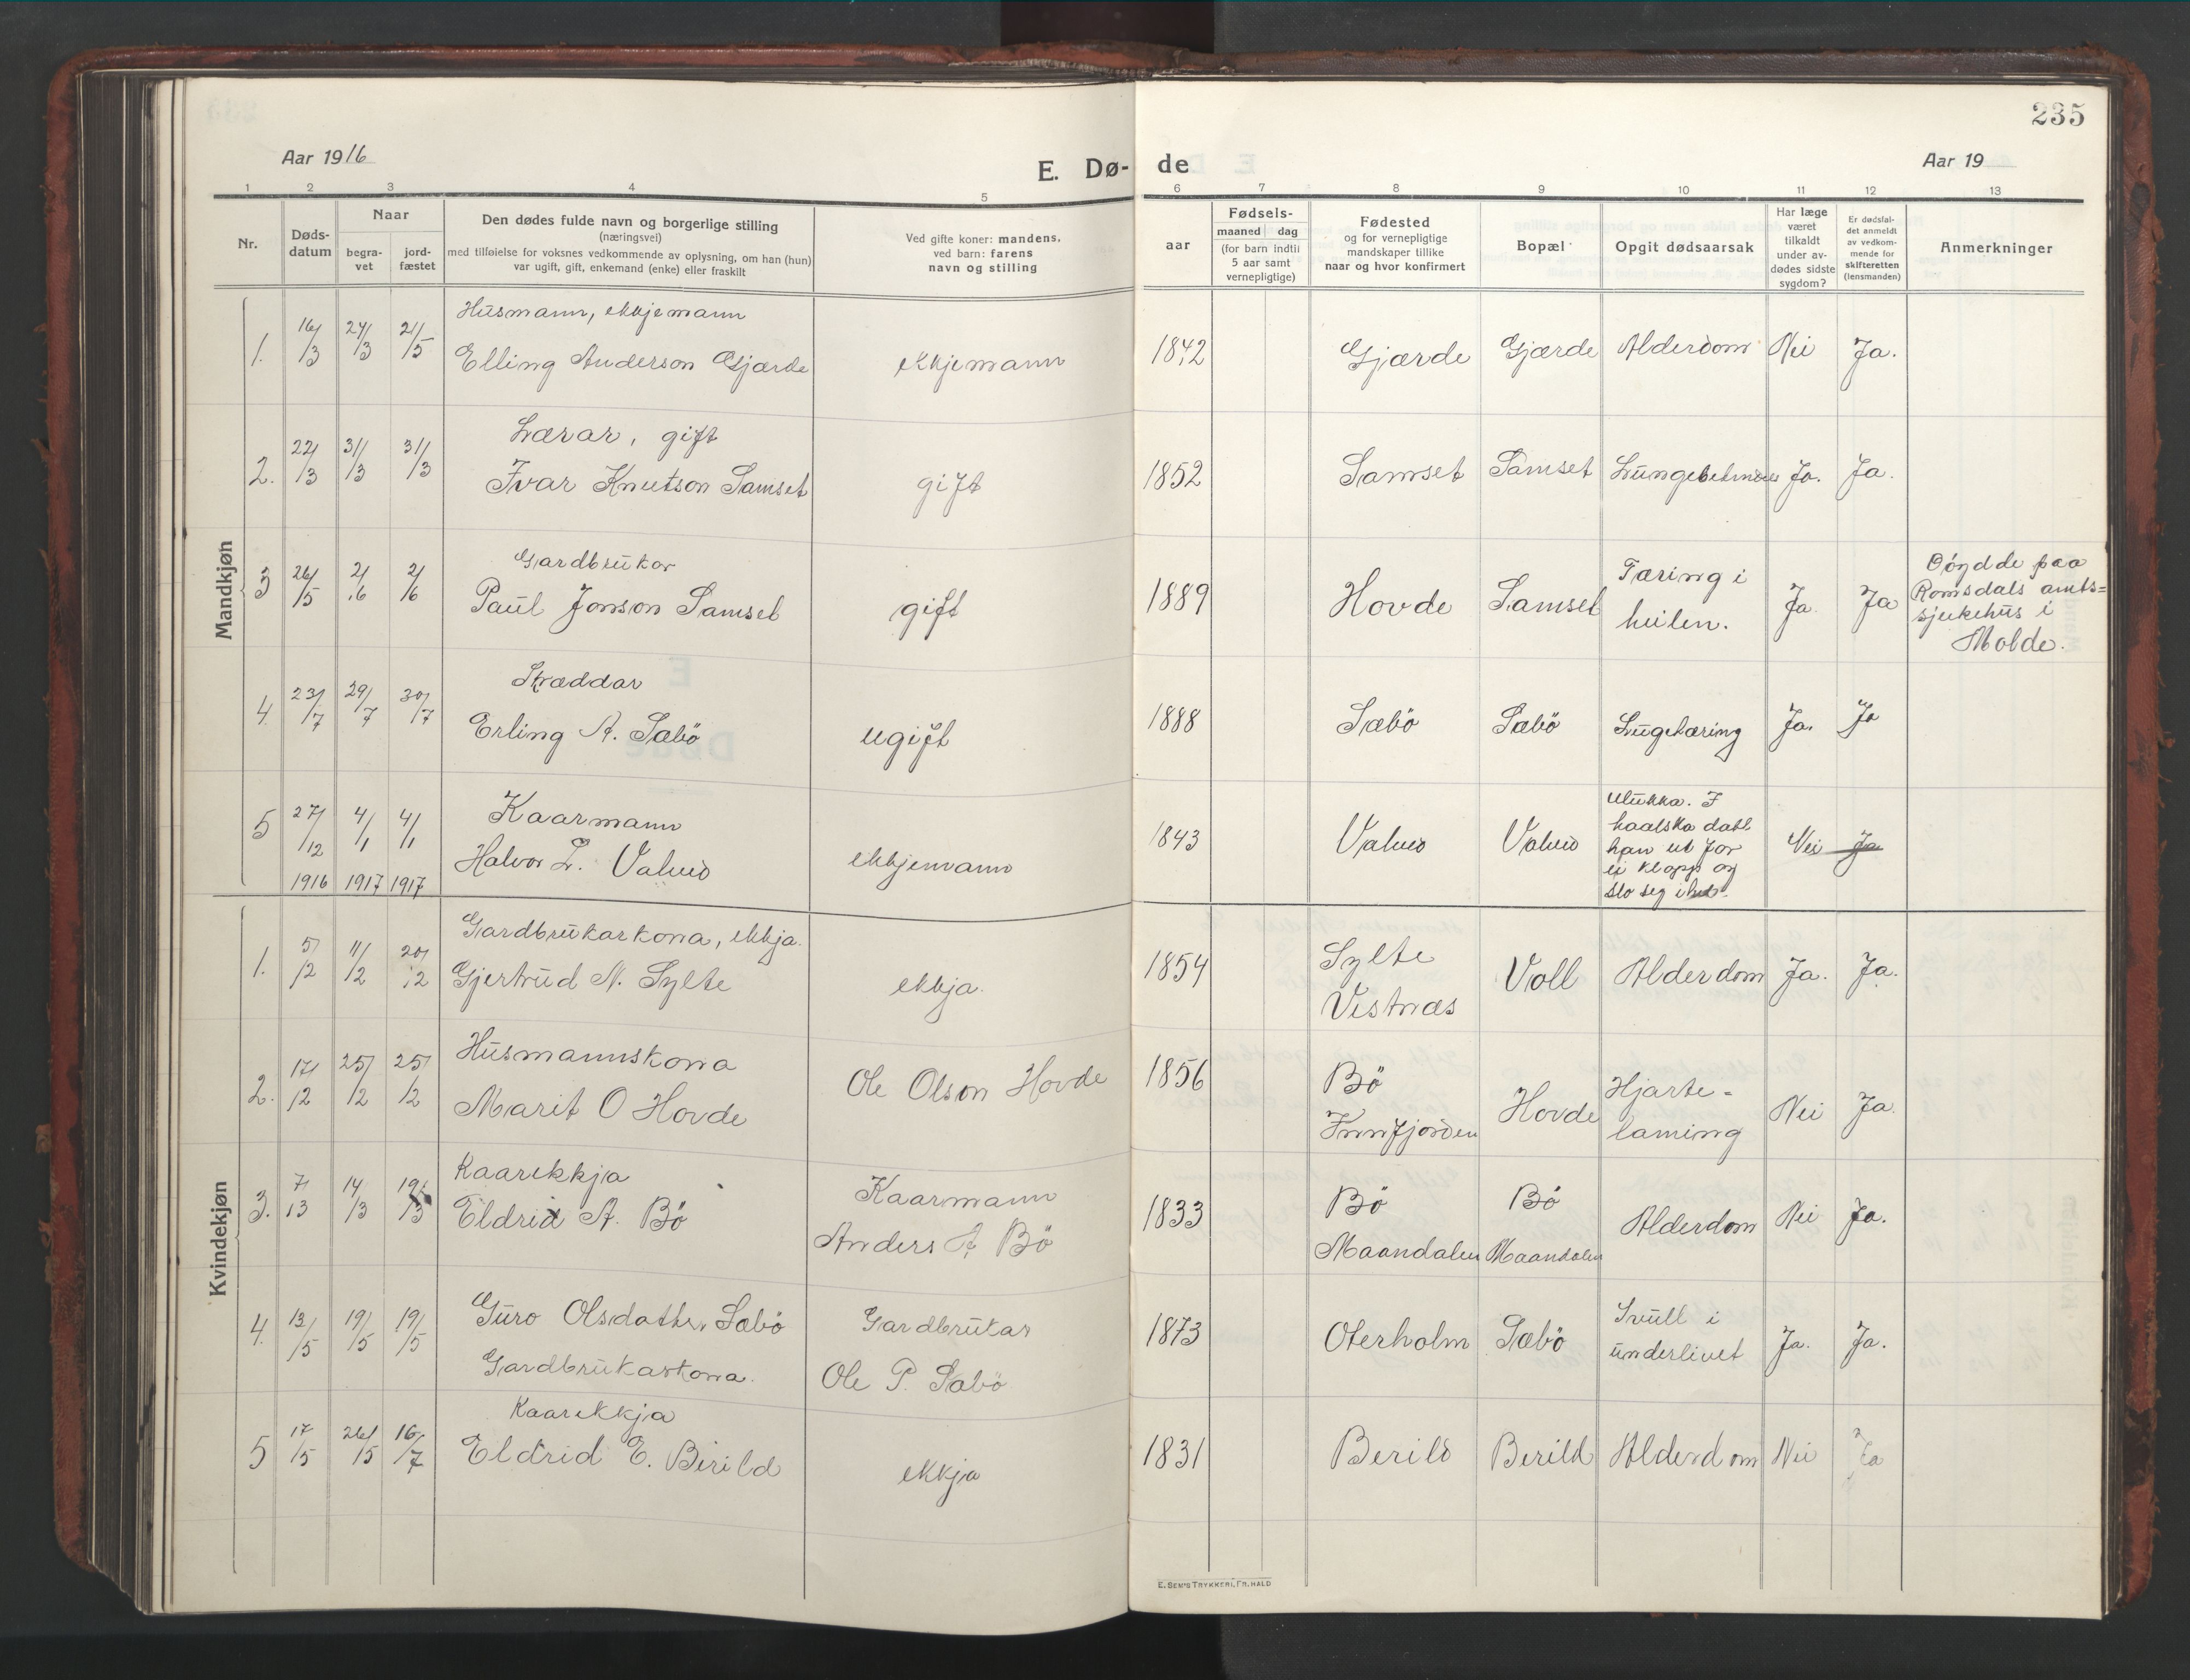 235
Aar 1916
E. Dø-
de
Aar 19
1 2 3 4 5 6 7 8 9 10 11 12 13
Nr.
Døds-
datum
Naar
begra-
vet
jord-
fæstet
Den dødes fulde navn og borgerlige stilling
(næringsvei)
med tilføielse for voksnes vedkommende av oplysning, om han (hun)
var ugift, gift, enkemand (enke) eller fraskilt
Ved gifte koner: mandens,
ved barn: farens
navn og stilling
aar
Fødsels-
maaned dag
(for barn indtil
5 aar samt
vernepligtige)
Fødested
og for vernepligtige
mandskaper tillike
naar og hvor konfirmert
Bopæl
Opgit dødsaarsak
Har læge
været
tilkaldt
under av-
dødes sidste
sygdom?
Er dødsfal-
det anmeldt
av vedkom-
mende for
skifteretten
(lensmanden)
Anmerkninger
Mandkjøn
1. 16/3 24/3 21/5
Husmann, ekkjemann
Elling Anderson Gjærde
ekkjemann
1842 Gjærde Gjærde Alderdom Nei Ja.
2. 22/3 31/3 31/3
Lærar, gift
Ivar Knutson Samset
gift
1852 Samset Samset Ja. Ja.
3 26/5 2/6 2/6
Gardbrukar
Paul Jonson Samset
gift
1889 Hovde Samset
Tæring i
heilen.
Ja. Ja
Döydde paa
Romsdals amts=
sjukehus i
Molde.
4. 23/7 29/7 30/7
Skræddar
Erling A. Sæbö
ugift
1888 Sæbö Sæbö Lugetæring Ja. Ja
5 27/12 4/1 4/1
1916 1917 1917
Kaarmann
Halvor L. Valved
ekkjemann
1843 Valved Valved
Ulukka. I
haalska datt
han ut for
ei klopp og
slo seg ihel.
Nei Ja
Kvindekjøn
1. 5/2 11/2 20/2
Gardbrukarkona, ekkja.
Gjertrud N. Sylte
ekkja.
1854
Sylte
Vestnæs
Voll Alderdom Ja. Ja.
2. 17/2 25/2 25/2
Husmannskona
Marit O Hovde
Ole Olson Hovde
1856
Bö
Innfjorden
Hovde
Hjarte-
laming
Nei Ja.
3. 7/3 14/3 19/3
Kaarekkja
Eldrid A. Bö
Kaarmann
Anders A Bö
1833
Bö
Maandalen
Bö
Maandalen
Alderdom Nei Ja.
4. 13/5 19/5 19/5
Guro Olsdatter Sæbö
Gardbrukarkona.
Gardbrukar
Ole P. Sæbö
1873 Oterholm Sæbö
Svull i
underlivet
Ja. Ja.
5 17/5 26/5 16/7
Kaarekkja
Eldrid E. Berild
ekkja
1831 Berild Berild Alderdom Nei Ja
E. SEM'S TRYKKERI, FR.HALD